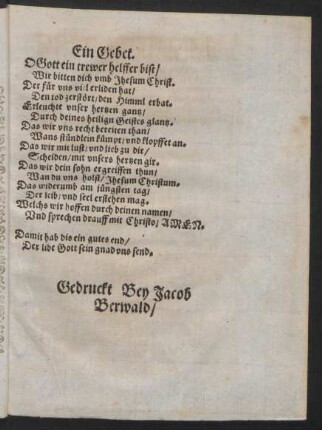 Ein Gebet.
O Gott ein trewer helffer bist/
Wir bitten dich vmb Jhesum Christ.
Der für vns vil erliden hat/
Den tod zerstört/ den Himml erbat.
Erleuchte vnser hertzen gantz/
Durch deines heilign Geistes glantz.
Das wir vns recht bereiten than/
Wans stündlein kümpt/ vnd klopffet an.
Das wir mit lust/ vnd lieb zu dir/
Scheiden/ mit vnsers hertzen gir.
Das wir dein sohn ergreiffen thun/
Wan du vns holst/ Jhesum Christum.
Das widerumb am jüngsten tag/
Der leib/ vnd seel erstehen mag.
Welchs wir hoffen durch deinen namen/
Vnd sprechen drauff mit Christo/ AMEN.
Damit hab dis ein gutes end/
Der libe Gott sein gnad vns send.
Gedruckt Bey Jacob
Berwald/